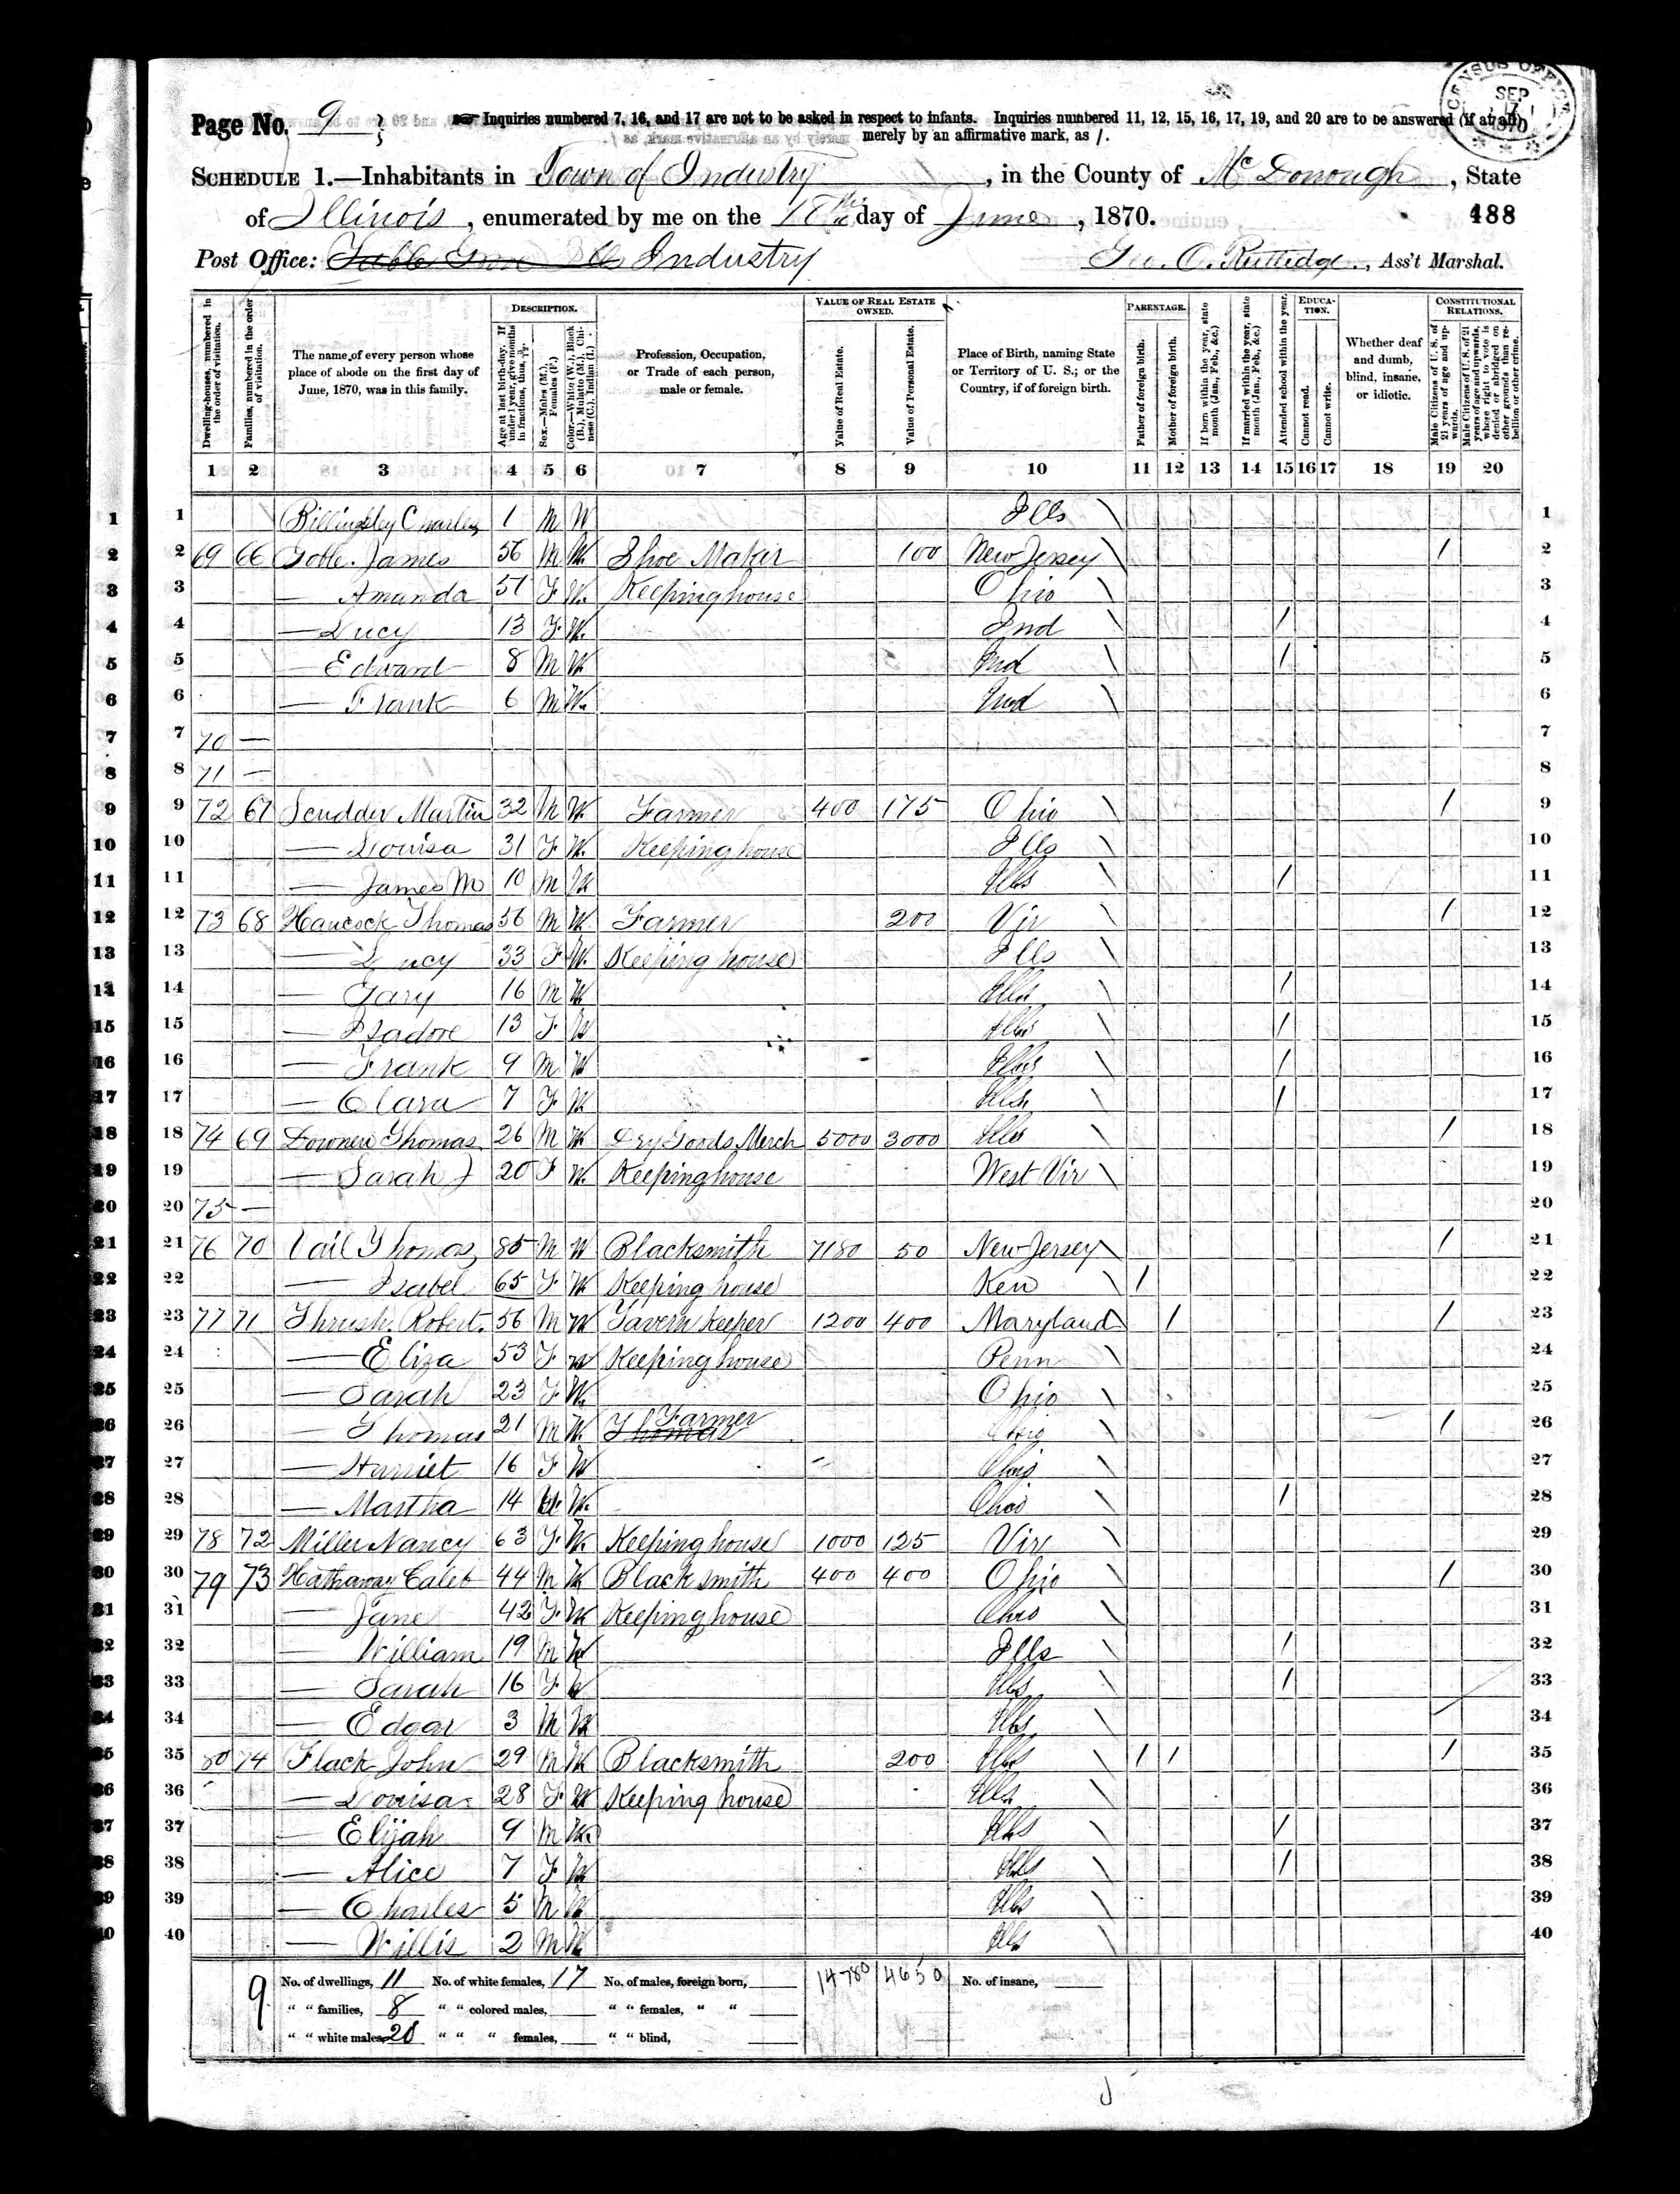 Page No. 9
Inquiries numbered 7, 16, and 17 are not to be asked in respect to infants. Inquiries numbered 11, 12, 15, 16, 17, 19, and 20 are to be answered (if at all)
merely by an affirmative mark, as /.
CENSUS OFFICE SEP 1870
SCHEDULE 1.—Inhabitants in Town of Industry, in the County of McDonough, State
of Illinois, enumerated by me on the 18th day of June, 1870. 488
Post Office: Table Grove Ills Industry Geo. O. Ruttidge, Ass't Marshal.
Dwelling-houses, numbered in the order of visitation.
Families, numbered in the order of visitation.
The name of every person whose place of abode on the first day of June, 1870, was in this family.
DESCRIPTION.
Age at last birth-day. If under 1 year, give months in fractions, thus, 3/12.
Sex.—Males (M.), Females (F.)
Color.—White (W.), Black (B.), Mulatto (M.), Chinese (C.), Indian (I.)
Profession, Occupation, or Trade of each person, male or female.
VALUE OF REAL ESTATE OWNED.
Value of Real Estate.
Value of Personal Estate.
Place of Birth, naming State or Territory of U. S.; or the Country, if of foreign birth.
PARENTAGE.
Father of foreign birth.
Mother of foreign birth.
If born within the year, state month (Jan., Feb., &c.)
If married within the year, state month (Jan., Feb., &c.)
Attended school within the year.
EDUCATION.
Cannot read.
Cannot write.
Whether deaf and dumb, blind, insane, or idiotic.
CONSTITUTIONAL RELATIONS.
Male Citizens of U. S. of 21 years of age and upwards.
Male Citizens of U. S. of 21 years of age and upwards, whose right to vote is denied or abridged on other grounds than rebellion or other crime.
1 2 3 4 5 6 7 8 9 10 11 12 13 14 15 16 17 18 19 20
1 Billingsley Charles 1 M W Ills \ 1
2 69 66 Goble James 56 M W. Shoe Maker 100 New Jersey \ / 2
3 — Amanda 51 F W. Keeping house Ohio \ 3
4 — Lucy 13 F. W. Ind \ / 4
5 — Edward 8 M W Ind \ / 5
6 — Frank 6 M W. Ind \ 6
7 70 — 7
8 71 — 8
9 72 67 Scudder Martin 32 M W. Farmer 400 175 Ohio \ / 9
10 — Louisa 31 F W. Keeping house Ills \ 10
11 — James M 10 M W Ills \ / 11
12 73 68 Hancock Thomas 56 M W. Farmer 200 Vir \ / 12
13 — Lucy 33 F W. Keeping house Ills \ 13
14 — Gary 16 M W Ills \ / 14
15 — Isadore 13 F W Ills \ / 15
16 — Frank 9 M W Ills \ / 16
17 — Clara 7 F W Ills \ / 17
18 74 69 Downen Thomas 26 M W Dry Goods Merch 5000 3000 Ills \ / 18
19 — Sarah J 20 F W. Keeping house West Vir \ 19
20 75 — 20
21 76 70 Vail Thomas 85 M W Blacksmith 7180 50 New Jersey \ / 21
22 — Isabel 65 F W Keeping house Ken \ / 22
23 77 71 Thrush Robert 56 M W Tavern Keeper 1200 400 Maryland / / 23
24 — Eliza 53 F W Keeping house Penn \ 24
25 — Sarah 23 F W. Ohio \ 25
26 — Thomas 21 M W. Thomas Farmer Ohio \ / 26
27 — Harriet 16 F W Ohio \ 27
28 — Martha 14 W. Ohio \ / 28
29 78 72 Miller Nancy 63 F W. Keeping house 1000 125 Vir \ 29
30 79 73 Hathaway Caleb 44 M W Black smith 400 400 Ohio \ / 30
31 — Jane 42 F W Keeping house Ohio \ 31
32 — William 19 M W Ills \ / 32
33 — Sarah 16 F W Ills \ / 33
34 — Edgar 3 M W Ills \ 34
35 80 74 Flack John 29 M W Blacksmith 200 Ills \ / / / 35
36 — Louisa 28 F W Keeping house Ills \ 36
37 — Elijah 9 M W. Ills \ / 37
38 — Alice 7 F W Ills \ / 38
39 — Charles 5 M W Ills \ 39
40 — Willis 2 M W Ills \ 40
9 No. of dwellings, 11 No. of white females, 17 No. of males, foreign born, 14780 4650 No. of insane,
" " families, 8 " " colored males, " " females, " "
" " white males, 20 " " " females, " " blind,